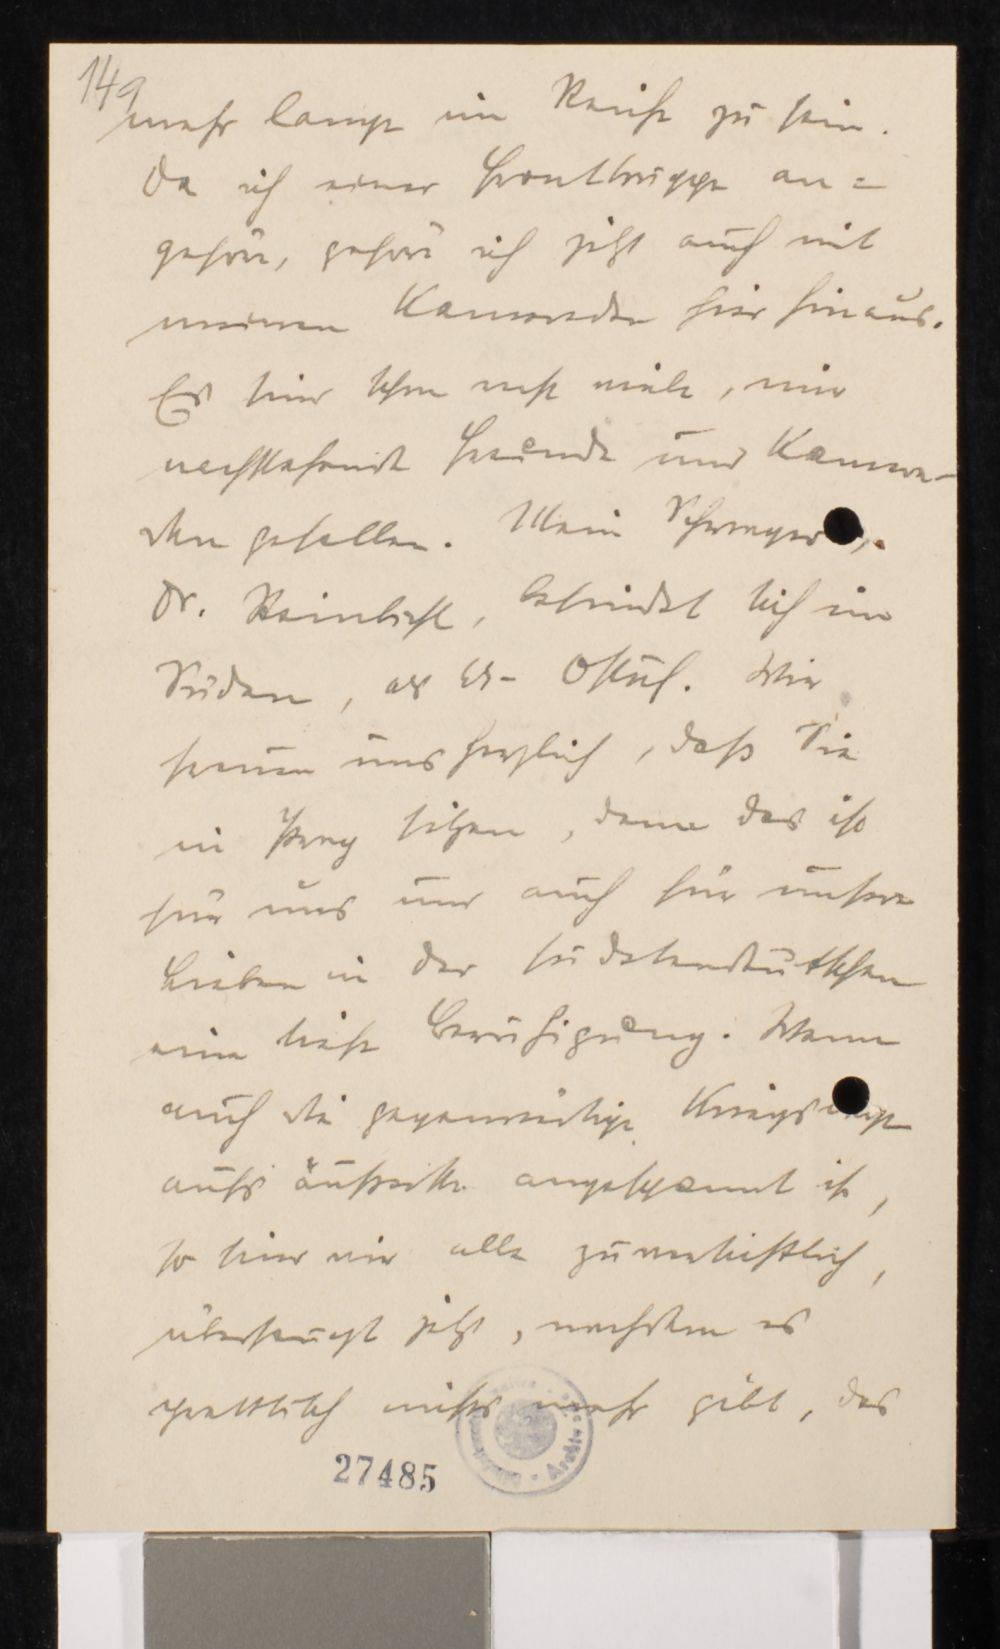 149
mehr lange im Reiche zu sein.
Da ich einer Fronttruppe an=
gehöre, gehöre ich jetzt auch mit
meinen Kameraden hier hinaus.
Es sind schon recht viele, mir
nahestehende Freunde und Kamera-
den gefallen. Mein Schwager,
Dr. , befindet sich im
Süden, als SS-Ostuf. Wir
freuen uns herzlich, daß Sie
in Prag sitzen, denn das ist
für uns und auch für unsere
Lieben in der sudetendeutschen
eine tiefe Beruhigung. Wenn
auch die gegenwärtige Kriegslage
aufs äußerste angespannt ist,
so sind wir alle zuversichtlich,
überzeugt jetzt, nachdem es
praktisch nichts mehr gibt, das
27485